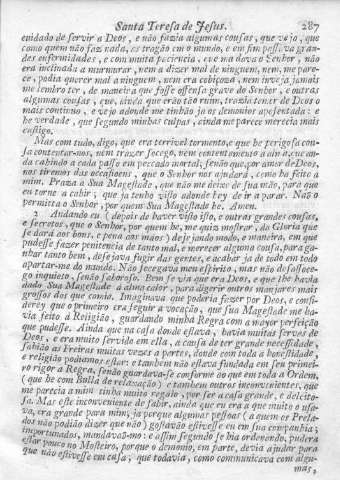 Santa Teresa de Jesus. 287
cuidado de servir a Deos, e não fazia algumas cousas, que vejo, que
como quem não faz nada, os tragão em o mundo, e em fim passava gran-
des enfermidades, e com muita paciencia, que na dava o Senhor, não
era inclinada a murmurar, nem a dizer mal de ninguem, nem, me pare-
ce, podia querer mal a ninguem, nem era cobiçoza, nem inveja jamais
me lembro ter, de maneira que fosse offensa grave do Senhor, e outras
algumas cousas, que, ainda que erão tão ruim, trazia temor de Deos o
mais continuo, e vejo adonde me tinhão já os demonios aposentada: e
he verdade, que segundo minhas culpas, ainda me parece merecia mais
castigo.
Mas com tudo, digo, que era terrivel tormento, e que he perigosa cou-
sa contentar-nos, nem trazer socego, nem contentamento a alma, que an-
da cahindo a cada passo em peccado mortal; senão que, por amor de Deos,
nos tiremos das occasioens, que o Senhor nos ajudará, como ha feito a
mim. Praza a Sua Magestade, que não me deixe de sua mão, para que
eu torne a cahir; que já tenho visto adonde hey de ir a parar. Não o
permitta o Senhor, por quem Sua Magestade he. Amen.
2 Andando eu (depois de haver visto isto, e outras grandes cousas,
e secretos, que o Senhor, por quem he, me quiz mostrar, da Gloria que
se dará aos bons, e pena aos maos) dezejando modo, e maneira, em que
pudesse fazer penitencia de tanto mal, e merecer alguma cousa, para ga-
nhar tanto bem, desejava fugir das gentes, e acabar já de todo em todo
apartar-me do mundo. Não socegava meu espirito, mas não desassoce-
go inquieto, senão saboroso. Bem se via que era Deos, e que lhe havia
dado Sua Magestade á alma calor, para digerir outros manjares mais
grossos dos que comia. Imaginava que poderia fazer por Deos, e consi-
derey que o primeiro era seguir a vocação, que sua Magestade me ha-
via feito á Religião, guardando minha Regra com a mayor perfeição
que pudesse. Ainda que na casa donde estava, havia muitas servas de
Deos, e era muito servido em ella, a causa de ter grande necessidade,
sahião as Freiras muitas vezes a partes, donde com toda a honestidade,
e religião podiamos estar: e tambem não estava fundada em seu primei-
ro rigor a Regra, senão guardava-se conforme ao que em toda a Ordem,
(que he com Bulla de relaxação) e tambem outros inconvenientes, que
me parecia a mim tinha muito regalo, por ser a casa grande, e deleito-
sa. Mas este inconveniente de sahir, ainda que eu era a que muito o usa-
va, era grande para mim, já porque algumas pessoas (a quem os Prela-
dos não podião dizer que não) gostavão estivesse eu em sua companhia;
importunados, mandavaõ-mo: e assim segundo se hia ordenando, pudera
estar pouco no Mosteiro, porque o demonio, em parte, devia ajudar para
que não estivesse em casa; que todavia, como communicava com algu-
mas,